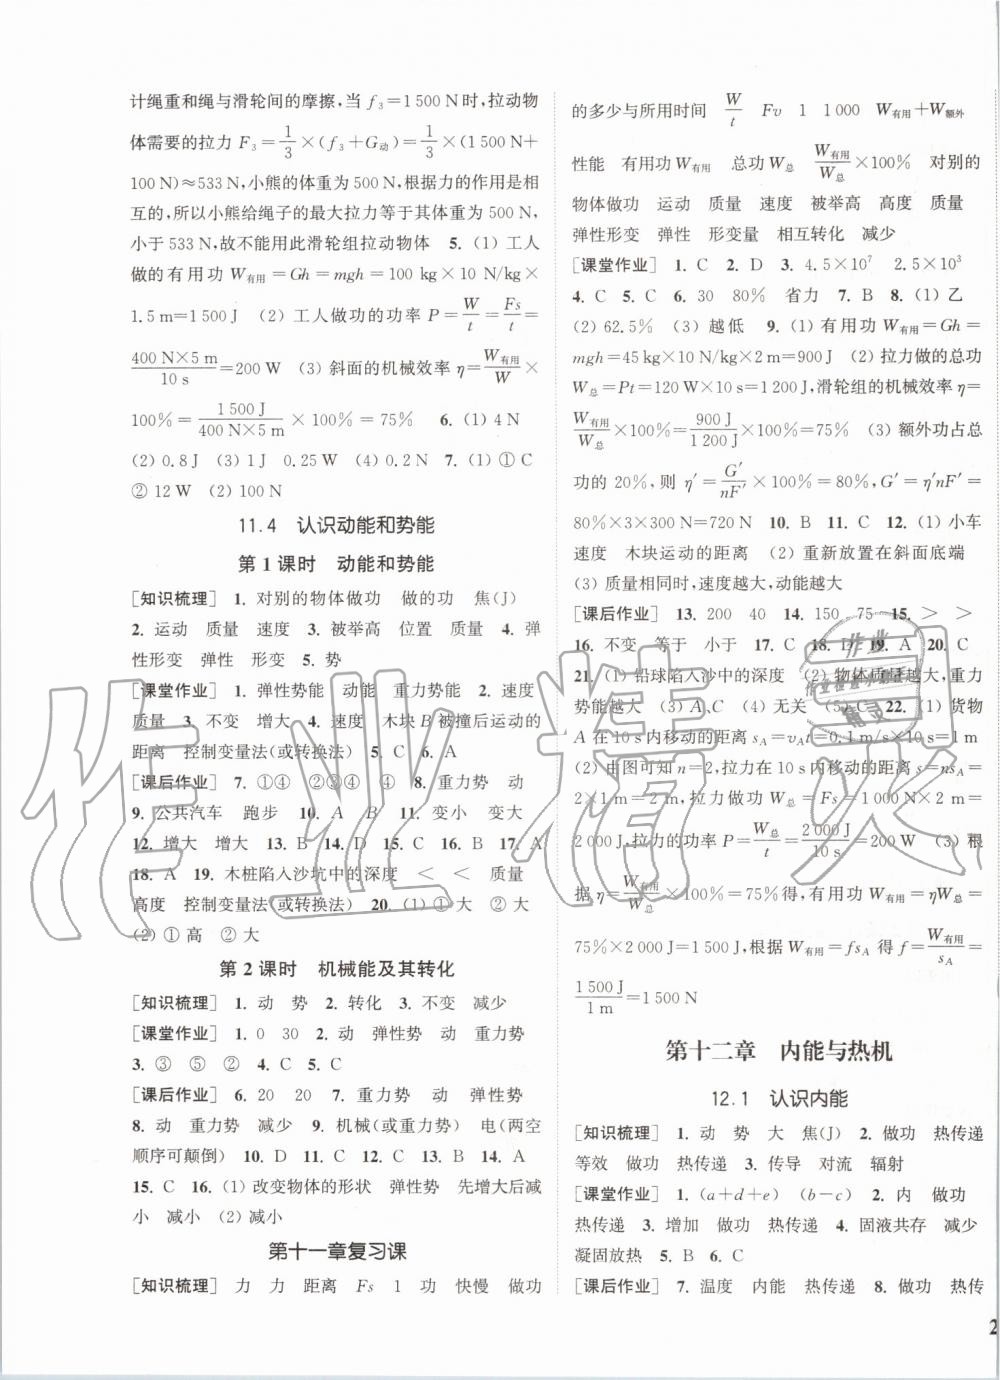 计绳重和绳与滑轮间的摩擦,当 f₃=1 500 N时,拉动物
体需要的拉力 F₃=1/3×(f₃+G动)=1/3×(1 500 N+
100 N)≈533 N,小熊的体重为 500 N,根据力的作用是相
互的,所以小熊给绳子的最大拉力等于其体重为 500 N,
小于 533 N,故不能用此滑轮组拉动物体 5. (1) 工人
做的有用功 W有用=Gh=mgh=100 kg×10 N/kg×
1.5 m=1 500 J (2) 工人做功的功率 P=W/t=Fs/t=
400 N×5 m/10 s=200 W (3) 斜面的机械效率 η=W有用/W×
100%=1 500 J/400 N×5 m×100%=75% 6. (1) 4 N
(2) 0.8 J (3) 1 J 0.25 W (4) 0.2 N 7. (1) ① C
② 12 W (2) 100 N
11.4 认识动能和势能
第 1 课时 动能和势能
[知识梳理] 1. 对别的物体做功 做的功 焦(J)
2. 运动 质量 速度 3. 被举高 位置 质量 4. 弹
性形变 弹性 形变 5. 势
[课堂作业] 1. 弹性势能 动能 重力势能 2. 速度
质量 3. 不变 增大 4. 速度 木块 B 被撞后运动的
距离 控制变量法(或转换法) 5. C 6. A
[课后作业] 7. ①④ ②③④ ④ 8. 重力势 动
9. 公共汽车 跑步 10. A B 11. 变小 变大
12. 增大 增大 13. B 14. B 15. C 16. B 17. A
18. A 19. 木桩陷入沙坑中的深度 < < 质量
高度 控制变量法(或转换法) 20. (1) ① 大 ② 大
(2) ① 高 ② 大
第 2 课时 机械能及其转化
[知识梳理] 1. 动 势 2. 转化 3. 不变 减少
[课堂作业] 1. 0 30 2. 动 弹性势 动 重力势
3. ③ ⑤ ② 4. C 5. C
[课后作业] 6. 20 20 7. 重力势 动 弹性势
8. 动 重力势 减少 9. 机械(或重力势) 电(两空
顺序可颠倒) 10. D 11. C 12. C 13. B 14. A
15. C 16. (1) 改变物体的形状 弹性势 先增大后减
小 减小 (2) 减小
第十一章复习课
[知识梳理] 力 力 距离 Fs 1 功 快慢 做功
的多少与所用时间 W/t Fv 1 1 000 W有用+W额外
性能 有用功 W有用 总功 W总 W有用/W总×100% 对别的
物体做功 运动 质量 速度 被举高 高度 质量
弹性形变 弹性 形变量 相互转化 减少
[课堂作业] 1. C 2. D 3. 4.5×10⁷ 2.5×10³
4. C 5. C 6. 30 80% 省力 7. B 8. (1) 乙
(2) 62.5% (3) 越低 9. (1) 有用功 W有用=Gh=
mgh=45 kg×10 N/kg×2 m=900 J (2) 拉力做的总功
W总=Pt=120 W×10 s=1 200 J,滑轮组的机械效率 η=
W有用/W总×100%=900 J/1 200 J×100%=75% (3) 额外功占总
功的 20%,则 η′=G′/nF′×100%=80%,G′=η′nF′=
80%×3×300 N=720 N 10. B 11. C 12. (1) 小车
速度 木块运动的距离 (2) 重新放置在斜面底端
(3) 质量相同时,速度越大,动能越大
[课后作业] 13. 200 40 14. 150 75 15. > >
16. 不变 等于 小于 17. C 18. D 19. A 20. C
21. (1) 铅球陷入沙中的深度 (2) 物体质量越大,重力
势能越大 (3) A、C (4) 无关 (5) C 22. (1) 货物
A 在 10 s 内移动的距离 sA=vAt=0.1 m/s×10 s=1 m
(2) 由图可知 n=2,拉力在 10 s 内移动的距离 s=nsA=
2×1 m=2 m,拉力做功 W总=Fs=1 000 N×2 m=
2 000 J,拉力的功率 P=W总/t=2 000 J/10 s=200 W (3) 根
据 η=W有用/W总×100%=75%得,有用功 W有用=ηW总=
75%×2 000 J=1 500 J,根据 W有用=fsA 得 f=W有用/sA=
1 500 J/1 m=1 500 N
第十二章 内能与热机
12.1 认识内能
[知识梳理] 1. 动 势 大 焦(J) 2. 做功 热传递
等效 做功 热传递 3. 传导 对流 辐射
[课堂作业] 1. (a+d+e) (b-c) 2. 内 做功
热传递 3. 增加 做功 热传递 4. 固液共存 减少
凝固放热 5. B 6. C
[课后作业] 7. 温度 内能 热传递 8. 做功 热传
2
作业精灵
作业
精灵